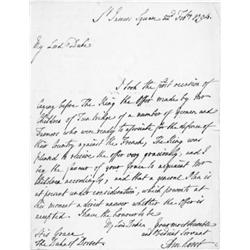 St James Square 22d Feby 1794.
My Lord Duke
I took the first occasion of
laying before The King the offer made by Mr
Children of Tunbridge of a number of Yeomen and
Farmers who were ready to associate for the defence of
this Country against the French, The King was
pleased to receive the offer very graciously, and I
beg the favour of your Grace to acquaint Mr
Children accordingly, and that a general Plan is
at present under consideration, which prevents at
this moment a decided answer whether the offer is
accepted. I have the honour to be
My Lord Duke, your most obedient
and humble Servant
His Grace
The Duke of Dorset
Amherst